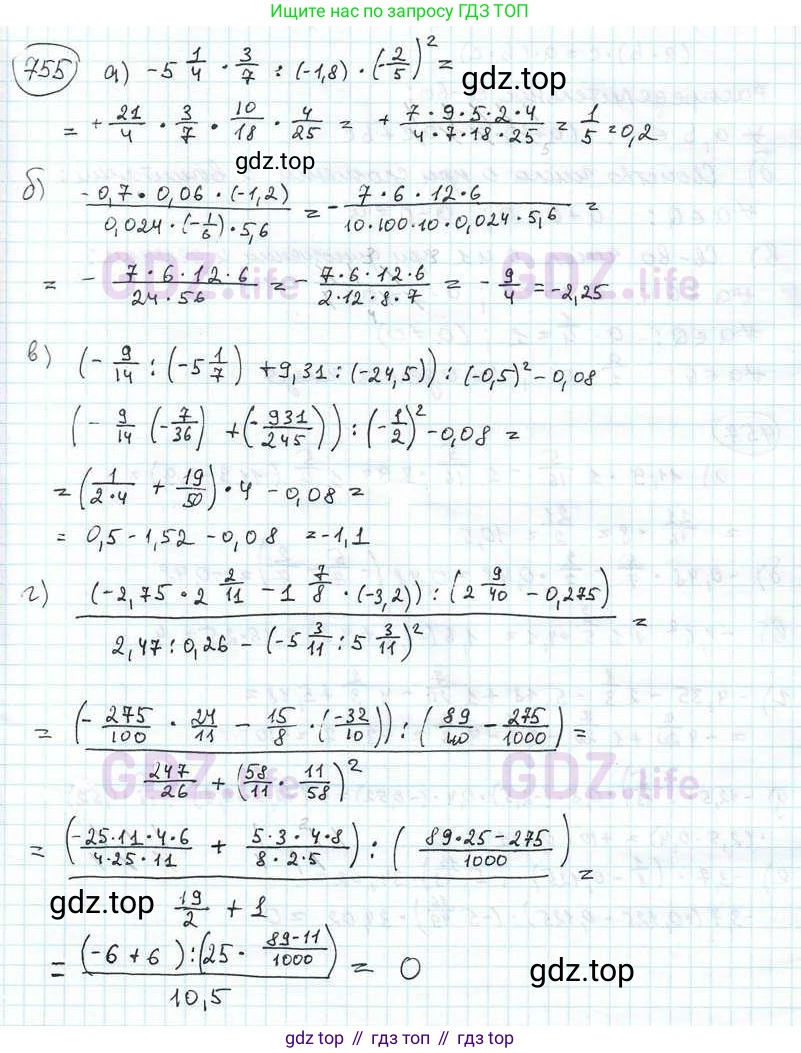 Ищите нас по запросу ГДЗ ТОП
755 а) -5 1/4 · 3/7 : (-1,8) · (-2/5)² =
gdz.top
= + 21/4 · 3/7 · 10/18 · 4/25 = + (7·9·5·2·4)/(4·7·18·25) = 1/5 = 0,2
gdz.top
б) (-0,7 · 0,06 · (-1,2))/(0,024 · (-1/6) · 5,6) = - (7·6·12·6)/(10·100·10·0,024·5,6) =
GDZ.life GDZ.life
= - (7·6·12·6)/(24·56) = - (7·6·12·6)/(2·12·8·7) = - 9/4 = -2,25
в) (- 9/14 : (-5 1/7) + 9,31 : (-24,5)) : (-0,5)² - 0,08
(- 9/14 (-7/36) + (-931/245)) : (-1/2)² - 0,08 =
= (1/(2·4) + 19/50) · 4 - 0,08 =
= 0,5 - 1,52 - 0,08 = -1,1
г) ((-2,75 · 2 2/11 - 1 7/8 · (-3,2)) : (2 9/40 - 0,275))/(2,47 : 0,26 - (-5 3/11 : 5 3/11)²) =
= ((- 275/100 · 24/11 - 15/8 · (-32/10)) : (89/40 - 275/1000))/(247/26 + (58/11 · 11/58)²) =
GDZ.life GDZ.life
= ((-25·11·4·6)/(4·25·11) + (5·3·4·8)/(8·2·5)) : ((89·25-275)/1000)/(19/2 + 1) =
gdz.top
= ((-6 + 6) : (25 · (89-11)/1000))/10,5 = 0
gdz.top
gdz top // гдз топ // гдз.топ